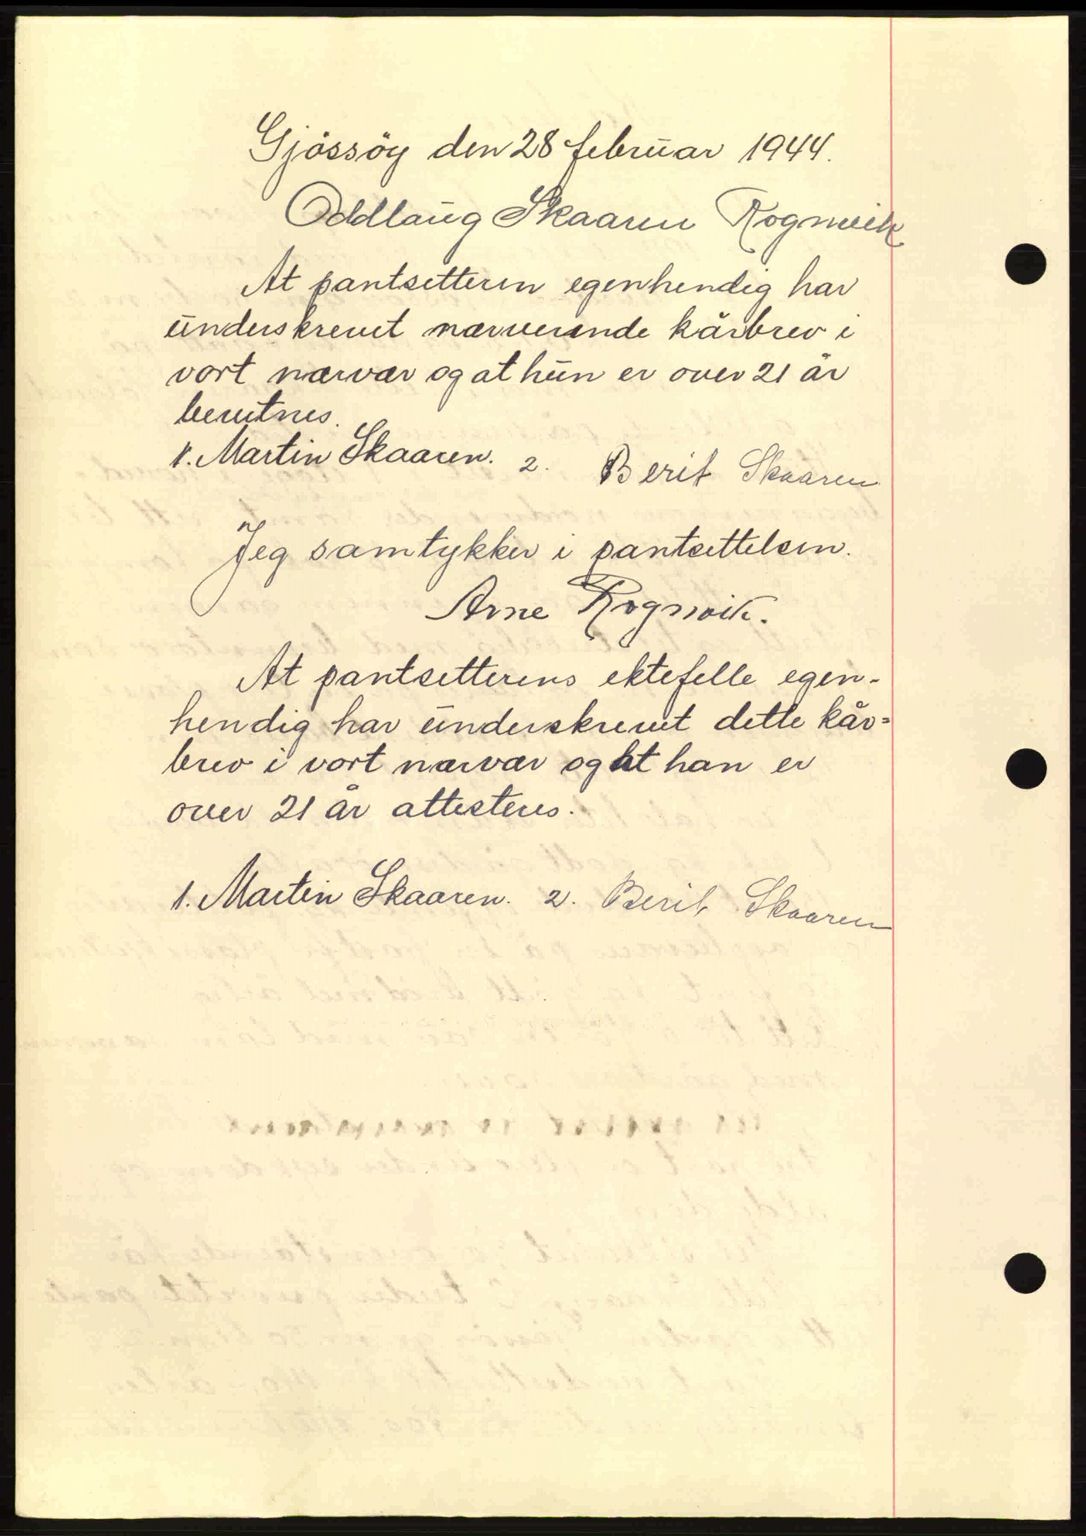 Gjössöy den 28 februar 1944.
Oddlaug Skaaren Rognvik
At pantsetteren egenhendig har
underskrevet nærverende kårbrev i
vort nærvær og at hun er over 21 år
bevitnes.
1. Martin Skaaren. 2. Berit Skaaren
Jeg samtykker i pantsettelsen.
Arne Rognvik.
At pantsetterens ektefelle egen-
hendig har underskrevet dette kår=
brev i vort nærvær og at han er
over 21 år attesteres.
1. Martin Skaaren. 2. Berit Skaaren